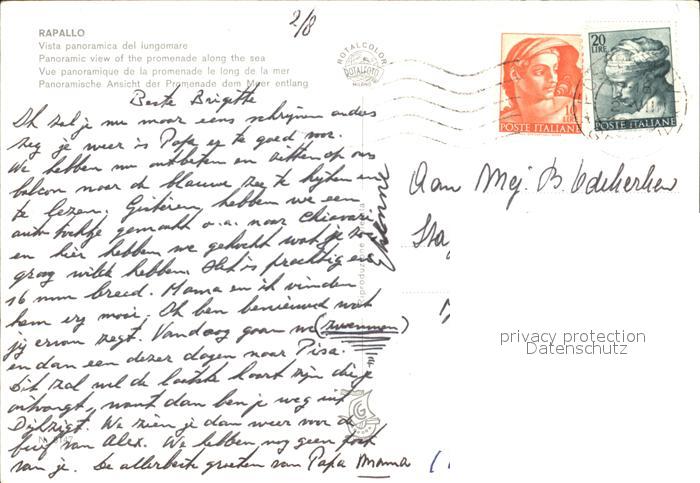 2/8
RAPALLO
Vista panoramica del lungomare
Panoramic view of the promenade along the sea
Vue panoramique de la promenade le long de la mer
Panoramische Ansicht der Promenade dem Meer entlang
ROTALCOLOR
ROTALFOTO
MILANO
10 LIRE
POSTE ITALIANE
20 LIRE
POSTE ITALIANE
Beste Brigitte
Ik zal je nu maar eens schrijven anders
zeg je weer is Papa er te goed voor.
We hebben nu ontbeten en zitten op ons
balcon naar de blauwe zee te kijken en
te lezen. Gisteren hebben we een
auto tochtje gemaakt o.a. naar Chiavari
en hier hebben we gekocht wat je zou
graag wilde hebben. Het is prachtig en
16 mm breed. Mama en ik vinden
hem erg mooi. Ik ben benieuwd wat
jij ervan zegt. Vandaag gaan we (zwemmen)
en dan een dezer dagen naar Pisa.
Dit zal wel de laatste kaart zijn die je
ontvangt, want dan ben je weg uit
Dijkzigt. We zien je dan weer voor de
brief van Alex. We hebben nog geen post
van je. De allerbeste groeten van Papa Mama
Aan Mej. B.
privacy protection
Datenschutz